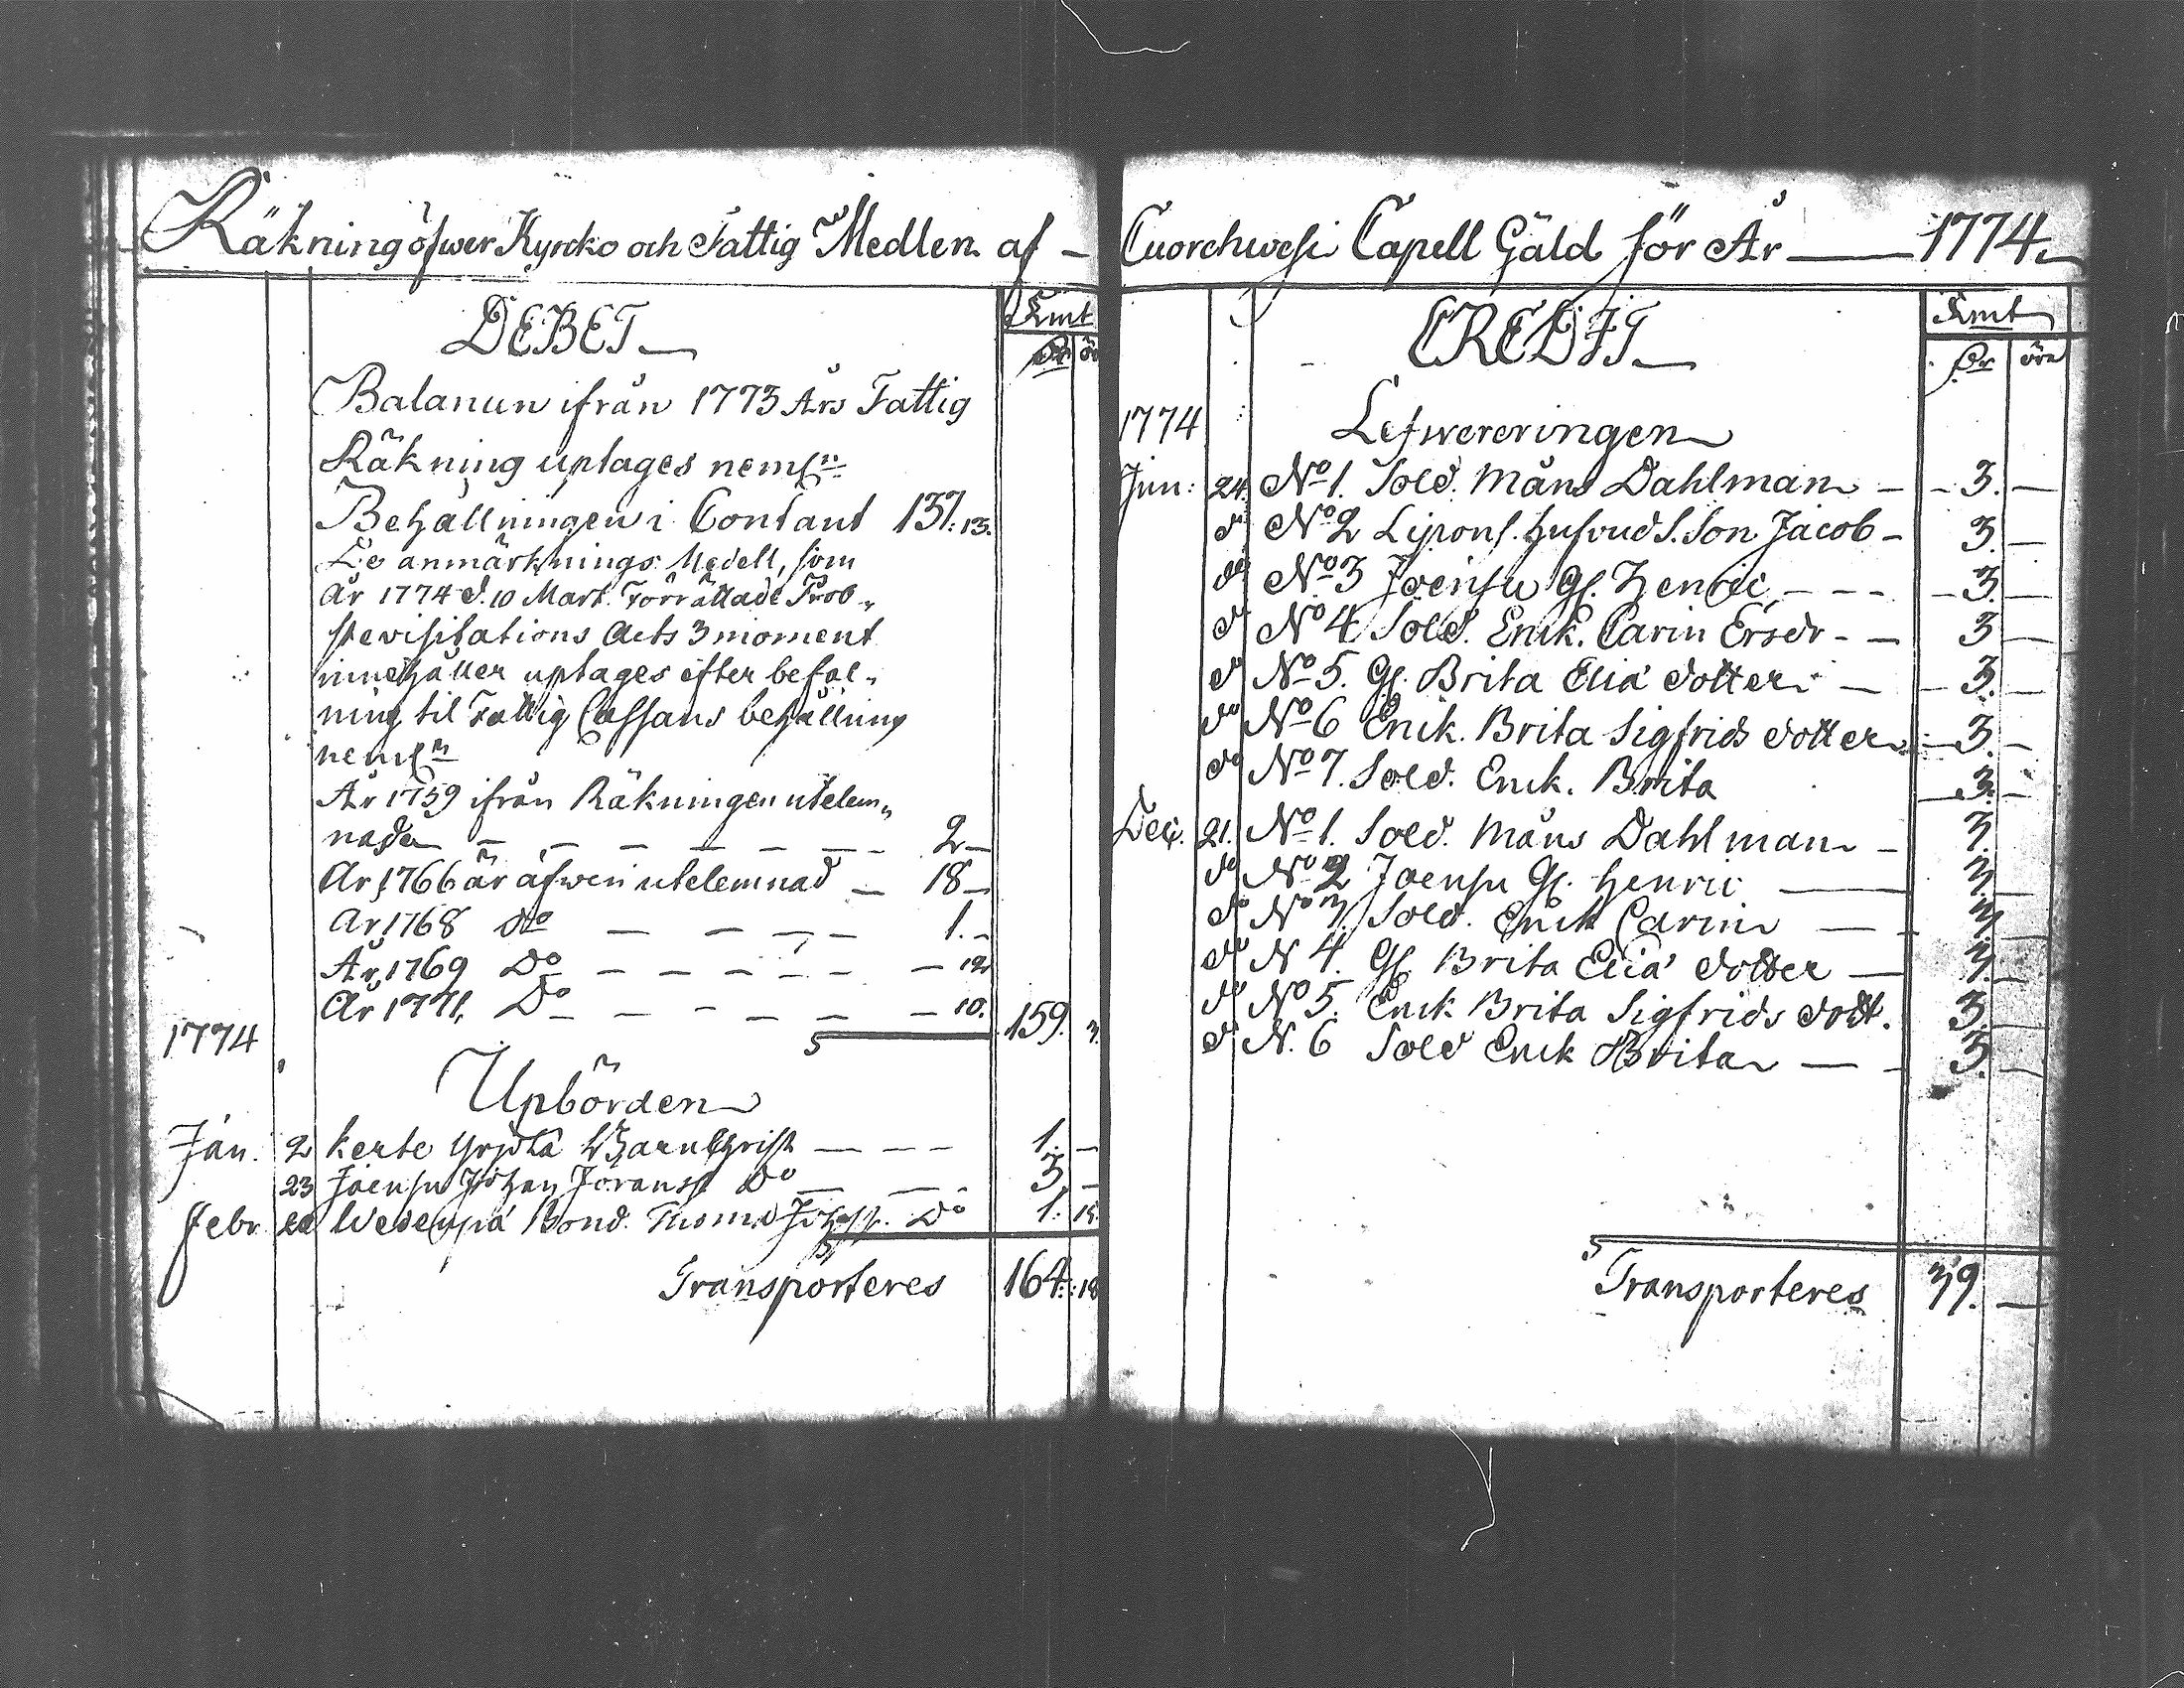 Räkning öfwer Kyrcko och Fattig Medlen af —
DEBET
Kmt
Dr ör
Balancen ifrån 1773 Års Fattig
Räkning uptages neml:n
Behållningen i Contant 137: 13.
De anmärknings Medell, som
År 1774 d. 10 Mart. Förrättade Prob„
stevisitations Acts 3 moment
innehåller uptages efter befal„
ning til Fattig Cassans behållning
neml:n
År 1759 ifrån Räkningen utelem„
nade — — — — — — — 2 —
År 1766 är äfwen utelemnad — 18 —
År 1768 Do — — — — 1. —
År 1769 Do — — — — — — 12
År 1771. Do — — — — — — 10.
1774 159. 3.
Upbörden
Jan. 2 Kerte Yrjölä Barn Christ — — — 1. —
23 Joensu Johan Jöranss Do — — 3. —
Febr. Bond. Thomas Do 1. 15.
Transporteres 164: 18
Cuorchwesi Capell Gäld för År — 1774.
CREDIT
Kmt
Dr öre
1774 Lefwereringen
Jun: 24. No 1. Sold. Måns Dahlman — — 3. —
do No 2 Jacob — 3. —
do No 3 Joensu Gl. Henric — — — — 3. —
do No 4 Sold. Enk. Carin Ersdr — — 3 —
do No 5. Gl. Brita Eliæ dotter — — 3. —
do No 6 Enk. Brita Sigfrids dotter — 3. —
do No 7. Sold. Enk. Brita — 3. —
Dec. 21. No 1. Sold. Måns Dahlman — 3.
do No 2 Joensu Gl. Henric — 3. —
do No 3. Sold. Enk Carin — — 3. —
do N 4. Gl. Brita Eliæ dotter — 3. —
do No 5. Enk Brita Sigfrids dott. 3. —
do N. 6 Sold Enk Brita — — 3. —
Transporteres 39. —